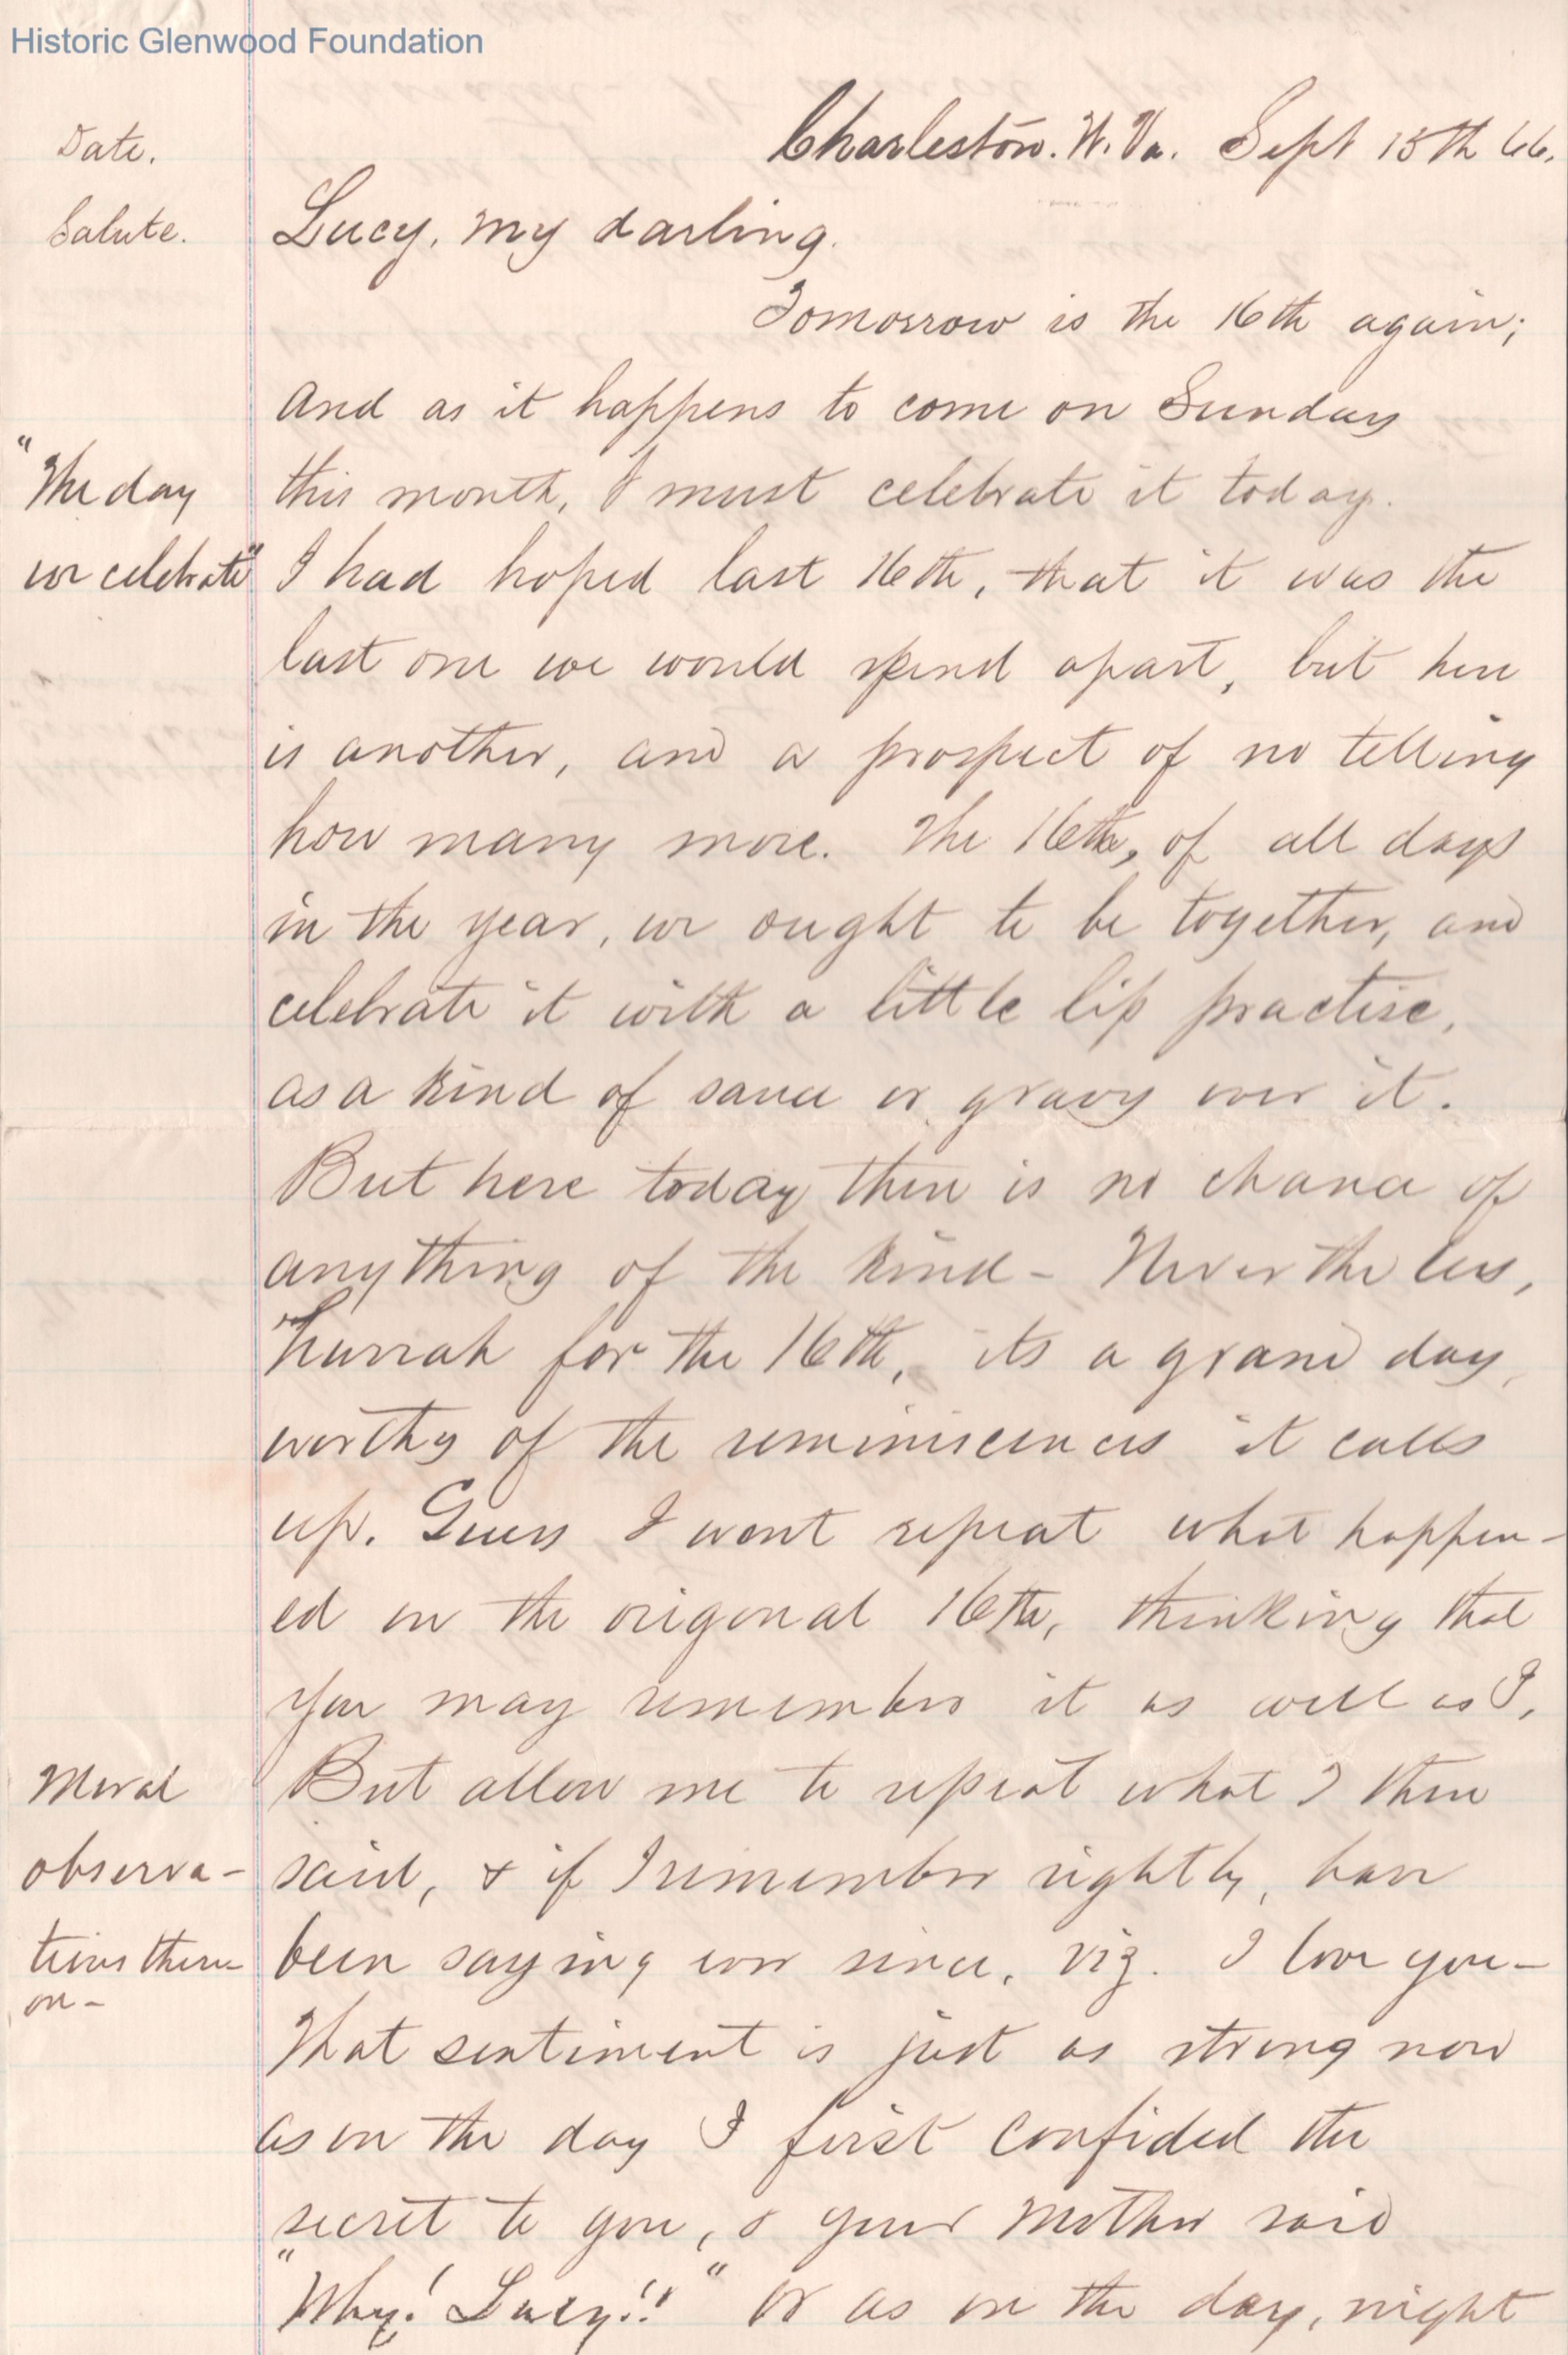 Historic Glenwood Foundation
Date.
Charleston. W. Va. Sept 15th 66.
Salute.
Lucy, my darling.
Tomorrow is the 16th again;
and as it happens to come on Sunday
"The day
this month, I must celebrate it today.
we celebrate"
I had hoped last 16th, that it was the
last one we would spend apart, but here
is another, and a prospect of no telling
how many more. The 16th, of all days
in the year, we ought to be together, and
celebrate it with a little lip practise,
as a kind of sauce or gravy over it.
But here today there is no chance of
anything of the kind - Nevertheless,
hurrah for the 16th, its a grand day,
worthy of the reminiscences it calls
up. Guess I wont repeat what happen-
ed on the origonal 16th, thinking that
you may remember it as well as I,
Moral
But allow me to repeat what I then
observa-
said, & if I remember rightly, have
tions there-
been saying ever since, viz. I love you-
on-
That sentiment is just as strong now
as on the day I first confided the
secret to you, & your Mother said
"Why! Lucy!!" or as on the day, night